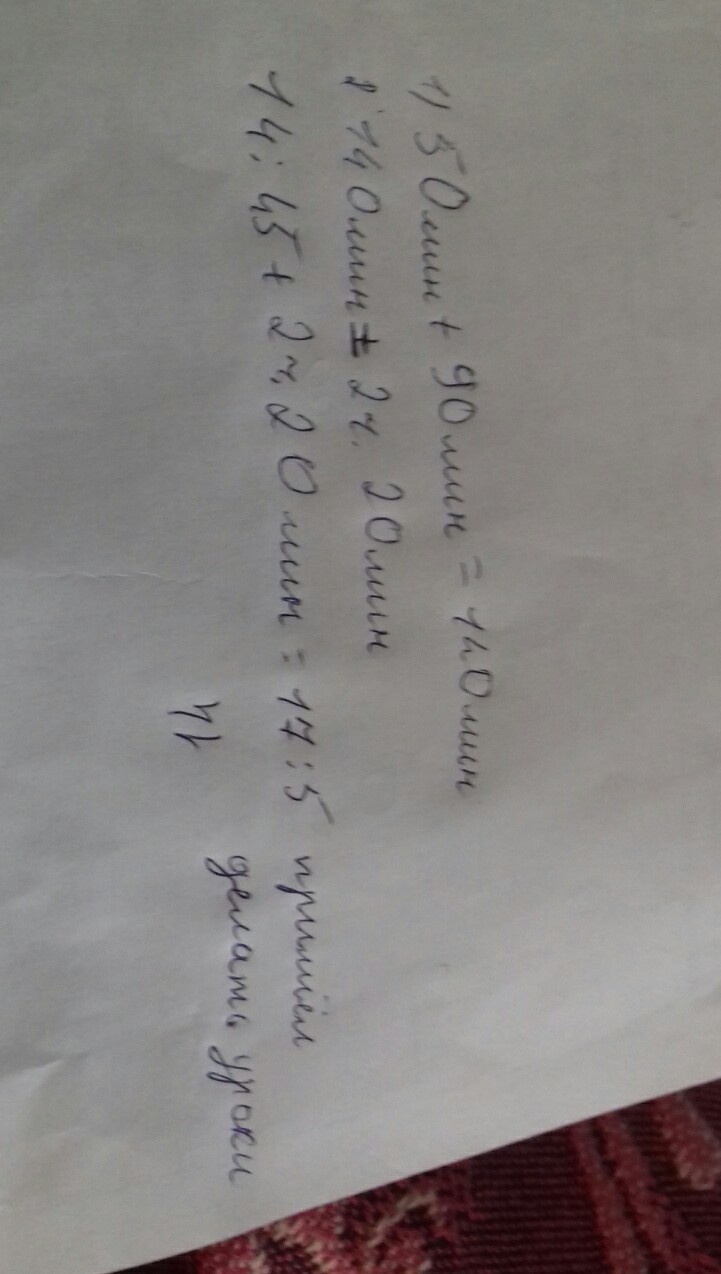 1) 50мин + 90мин = 140мин
2 140мин = 2ч. 20мин
14:45 + 2ч, 20мин = 17:5 пришёл
делать уроки